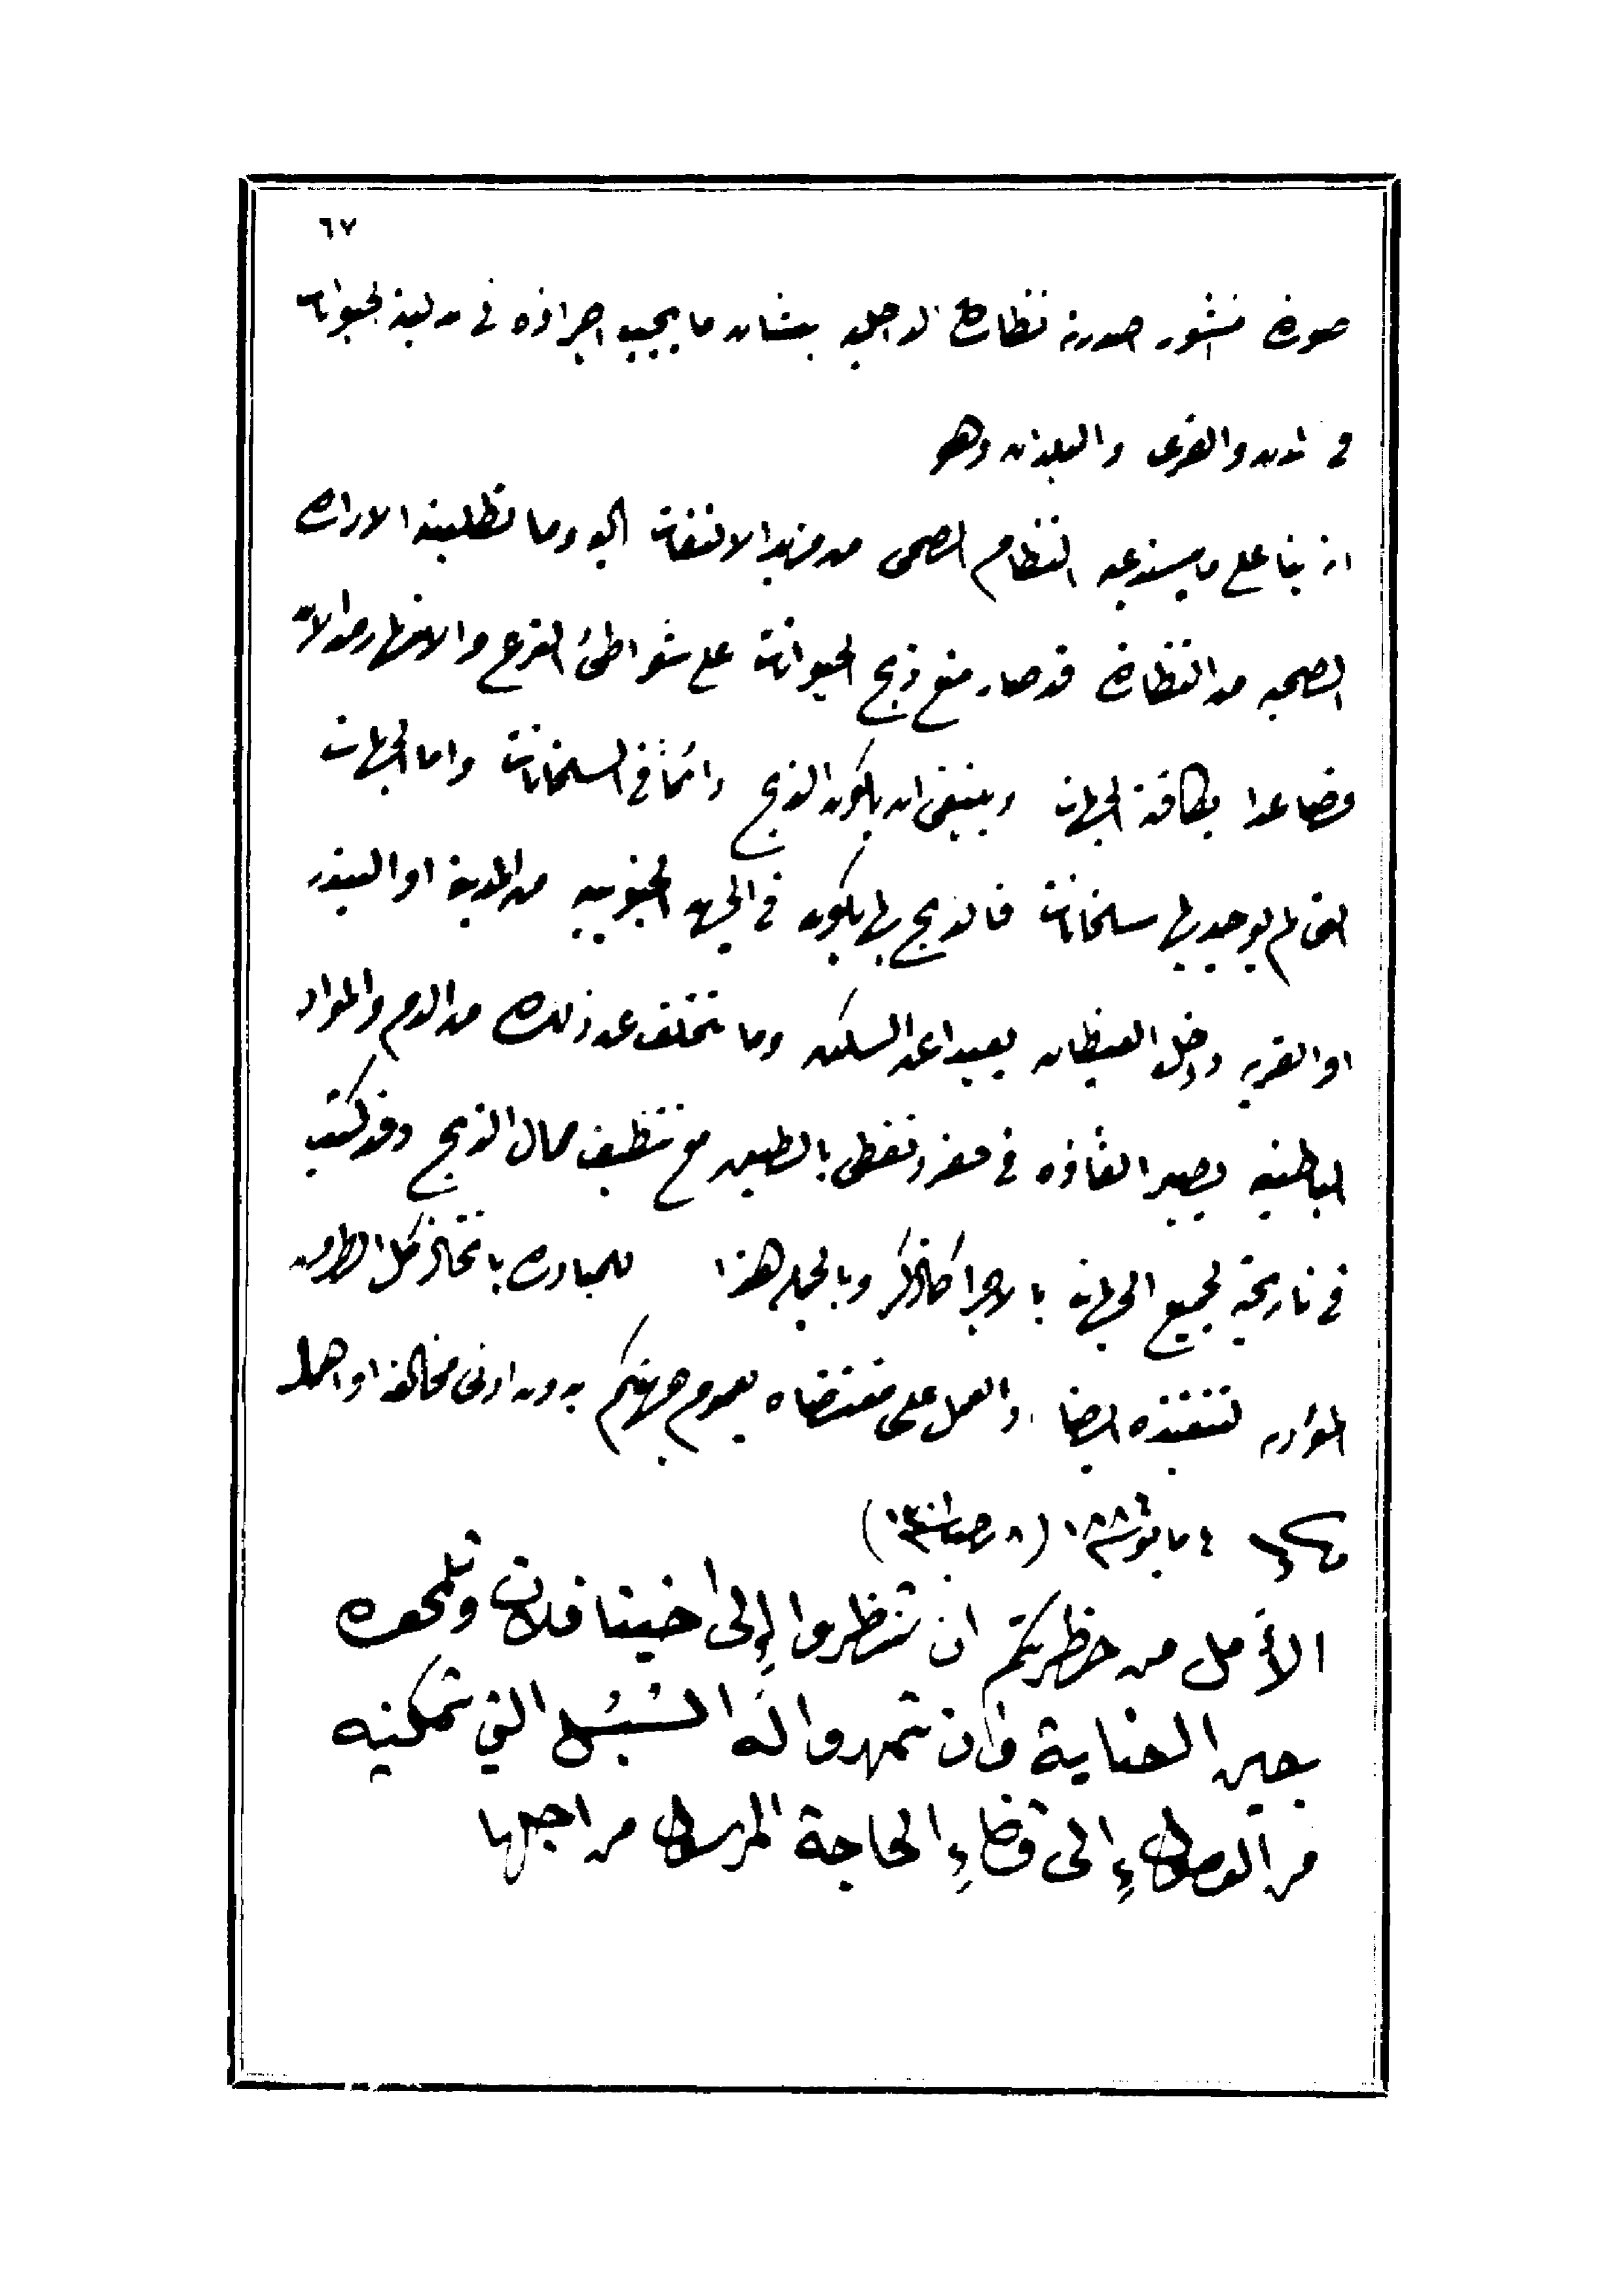 ٦٧
صورة منشور اصدرته نظارة الداخليه بشان ما يجب اجراؤه فى الحيوانات
فى المدن والقرى والبلدان وهو
انه بنا على ما يستدعيه النظام الصحى من مزيد الالتفات اليه وما تطلبته الادارة
الصحيه من النظارة قد صار منع ذبح الحيوانات على شواطئ الترع والانهار من الان
فصاعدا بكافة الجهات وينبغى ان يكون الذبح دائماً فى السلخانات واما الجهات
التى لم يوجد بها سلخانات فالذبح بها يكون فى الجهه الجنوبيه من المدينة او البندر
او القريه داخل الغيطان بعيدا عن السكن وما يتخلف عن ذلك من الدم والمواد
الباطنيه يصير القاؤه فى حفر وتغطى بالطين مع تنظيف محال الذبح وقد كتب
فى تاريخه لجميع الجهات بالاجرا كما ذكر وبالجمله هذا للمبادرة باتخاذ كل الطرق
المؤديه لتنفيذه ايضا والعمل على مقتضاه بعموم جهتكم بدون ادنى مخالفة او اهمال
٤ مايو
الأمل من حظرتكم ان تنظروا إلى اخينا فلان وتلحظوه
بعين العناية وان تمهدوا له السُبُل التي تمكنه
من الوصول إلى قضاءِ الحاجة المرسل من اجلها